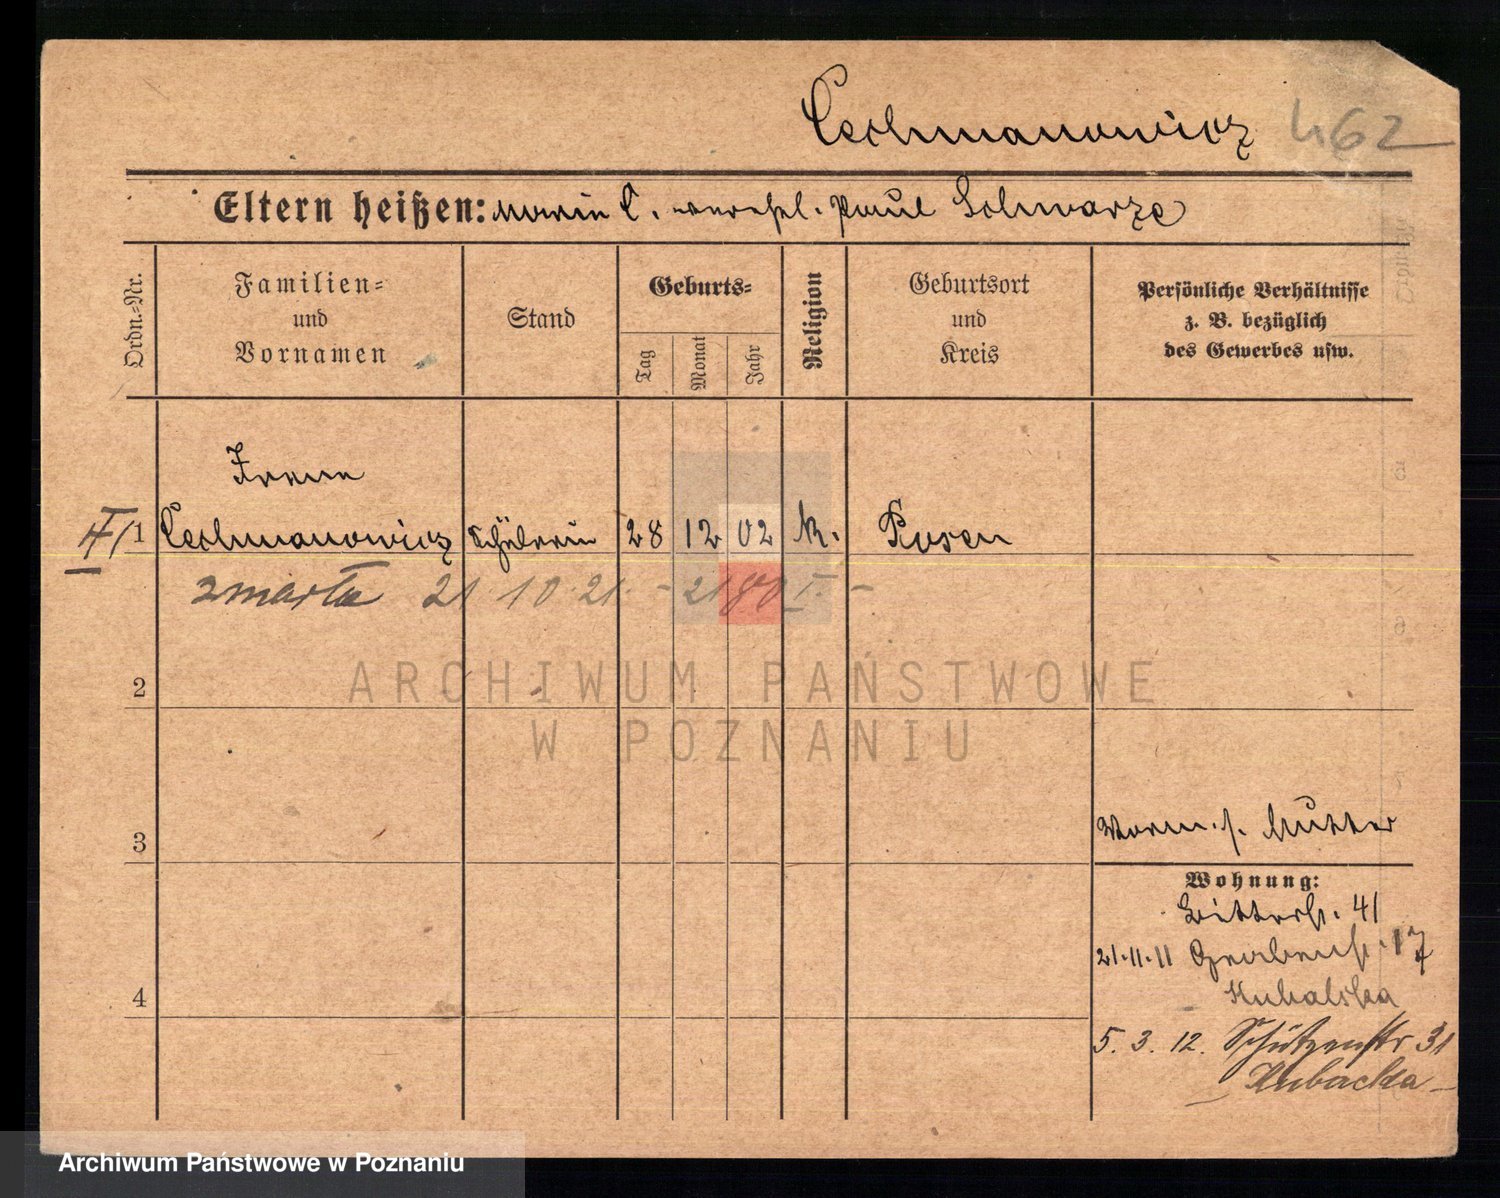 Cechmanowicz 462
Eltern heißen: Marie C. verehel. Paul Schwarze
Ordn.-Nr.
Familien-
und
Vornamen
Stand
Geburts-
Tag
Monat
Jahr
Religion
Geburtsort
und
Kreis
Persönliche Verhältnisse
z. B. bezüglich
des Gewerbes usw.
Irene
1 Cechmanowicz Schülerin 28 12 02 k. Posen
zmarła 21 10. 21. - 2180 I. -
2
ARCHIWUM PAŃSTWOWE
W POZNANIU
3
Vorm. s. Mutter
Wohnung:
Ritterstr. 41
21.11.11 Grabenstr. 17
4
5. 3. 12. Schützenstr 31
Kubacka
Archiwum Państwowe w Poznaniu